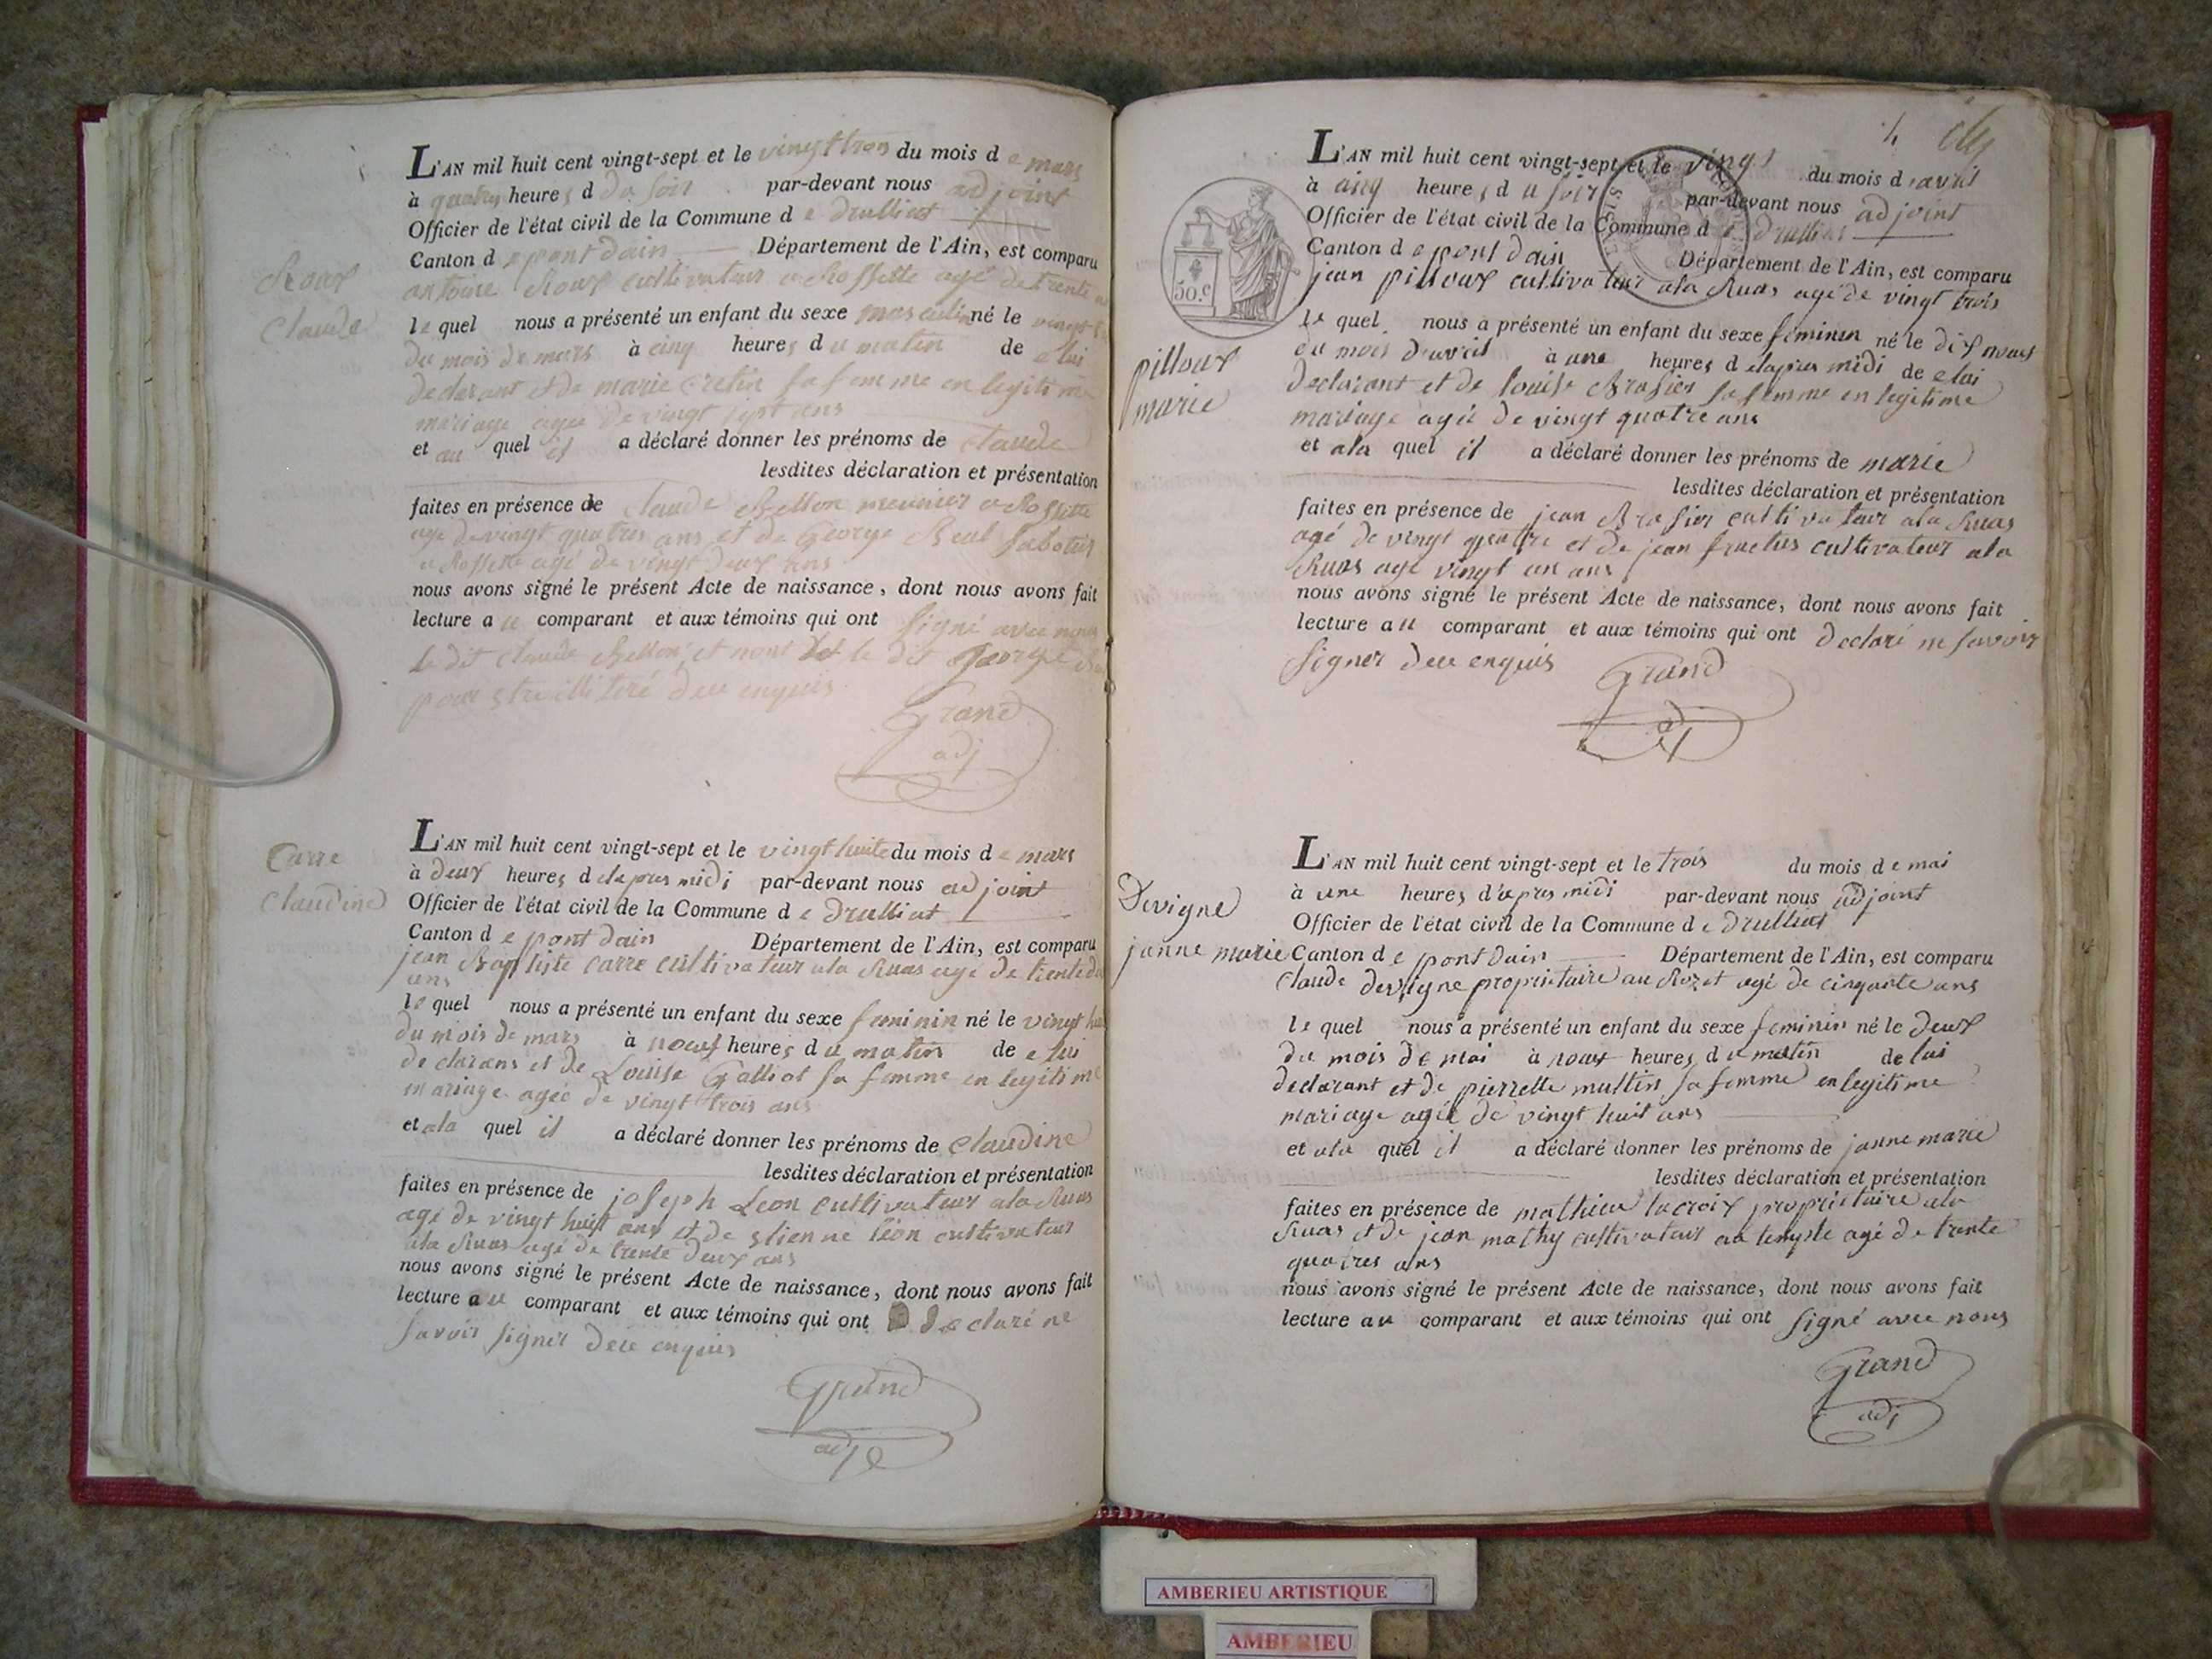 Roux
Claude
L'AN mil huit cent vingt-sept et le vingt trois du mois de mars
à quatres heures d du soir par-devant nous adjoint
Officier de l'état civil de la Commune de Druilliat
Canton de pont dain Département de l'Ain, est comparu
antoine Roux cultivateur a Rossette agé de trente
le quel nous a présenté un enfant du sexe masculin né le vingt
du mois de mars à cinq heures du matin de e lui
declarant et de marie Cretin sa femme en legitime
mariage agée de vingt sept ans
et au quel il a déclaré donner les prénoms de Claude
lesdites déclaration et présentation
faites en présence de Claude Bellon meunier a Rossette
agé de vingt quatres ans et de George Beal sabotier
a Rossette agé de vingt deux ans
nous avons signé le présent Acte de naissance, dont nous avons fait
lecture au comparant et aux témoins qui ont signé avec nous
le dit Claude Bellon et non le dit George
pour etre illiteré dece enquis
Grand
adj
Carre
Claudine
L'AN mil huit cent vingt-sept et le vingt huite du mois de mars
à deux heures delapres midi par-devant nous adjoint
Officier de l'état civil de la Commune de Druilliat
Canton de pont dain Département de l'Ain, est comparu
jean Baptiste carre cultivateur ala Ruas agé de trente
ans
le quel nous a présenté un enfant du sexe feminin né le vingt
du mois de mars à noeuf heures du matin de e lui
declarans et de Louise Galliot sa femme en legitime
mariage agée de vingt trois ans
et ala quel il a déclaré donner les prénoms de Claudine
lesdites déclaration et présentation
faites en présence de joseph Leon cultivateur ala Ruas
agé de vingt huit ans et de etienne léon cultivateur
ala Ruas agé de trente deux ans
nous avons signé le présent Acte de naissance, dont nous avons fait
lecture au comparant et aux témoins qui ont declaré ne
savoir signer dece enquis
Grand
adj
4
L'AN mil huit cent vingt-sept et le vingt du mois d avril
à cinq heures du soir par-devant nous adjoint
Officier de l'état civil de la Commune de Druilliat
Canton de pont dain Département de l'Ain, est comparu
jean pilloux cultivateur ala Ruas agé de vingt trois
50.c
le quel nous a présenté un enfant du sexe feminin né le dix noeuf
du mois d'avril à une heures delapres midi de e lui
pilloux
marie
declarant et de louise Brasier sa femme en legitime
mariage agée de vingt quatre ans
et ala quel il a déclaré donner les prénoms de marie
lesdites déclaration et présentation
faites en présence de jean Brasier cultivateur ala Ruas
agé de vingt quatre et de jean fructus cultivateur ala
Ruas agé vingt un ans
nous avons signé le présent Acte de naissance, dont nous avons fait
lecture au comparant et aux témoins qui ont declaré ne savoir
signer dece enquis
Grand
adj
L'AN mil huit cent vingt-sept et le trois du mois de mai
à une heures d'apres midi par-devant nous adjoint
Devigne
janne marie
Officier de l'état civil de la Commune de Druilliat
Canton de pont dain Département de l'Ain, est comparu
Claude devigne propriétaire au Rozet agé de cinqante ans
le quel nous a présenté un enfant du sexe feminin né le deux
du mois de mai à noeuf heures du matin de lui
declarant et de pierrette multin sa femme en legitime
mariage agée de vingt huit ans
et ala quel il a déclaré donner les prénoms de janne marie
lesdites déclaration et présentation
faites en présence de mathieu lacroix propriétaire ala
Ruas et de jean mathy cultivateur au temple agé de trente
quatres ans
nous avons signé le présent Acte de naissance, dont nous avons fait
lecture au comparant et aux témoins qui ont signé avec nous
Grand
adj
AMBERIEU ARTISTIQUE
AMBERIEU